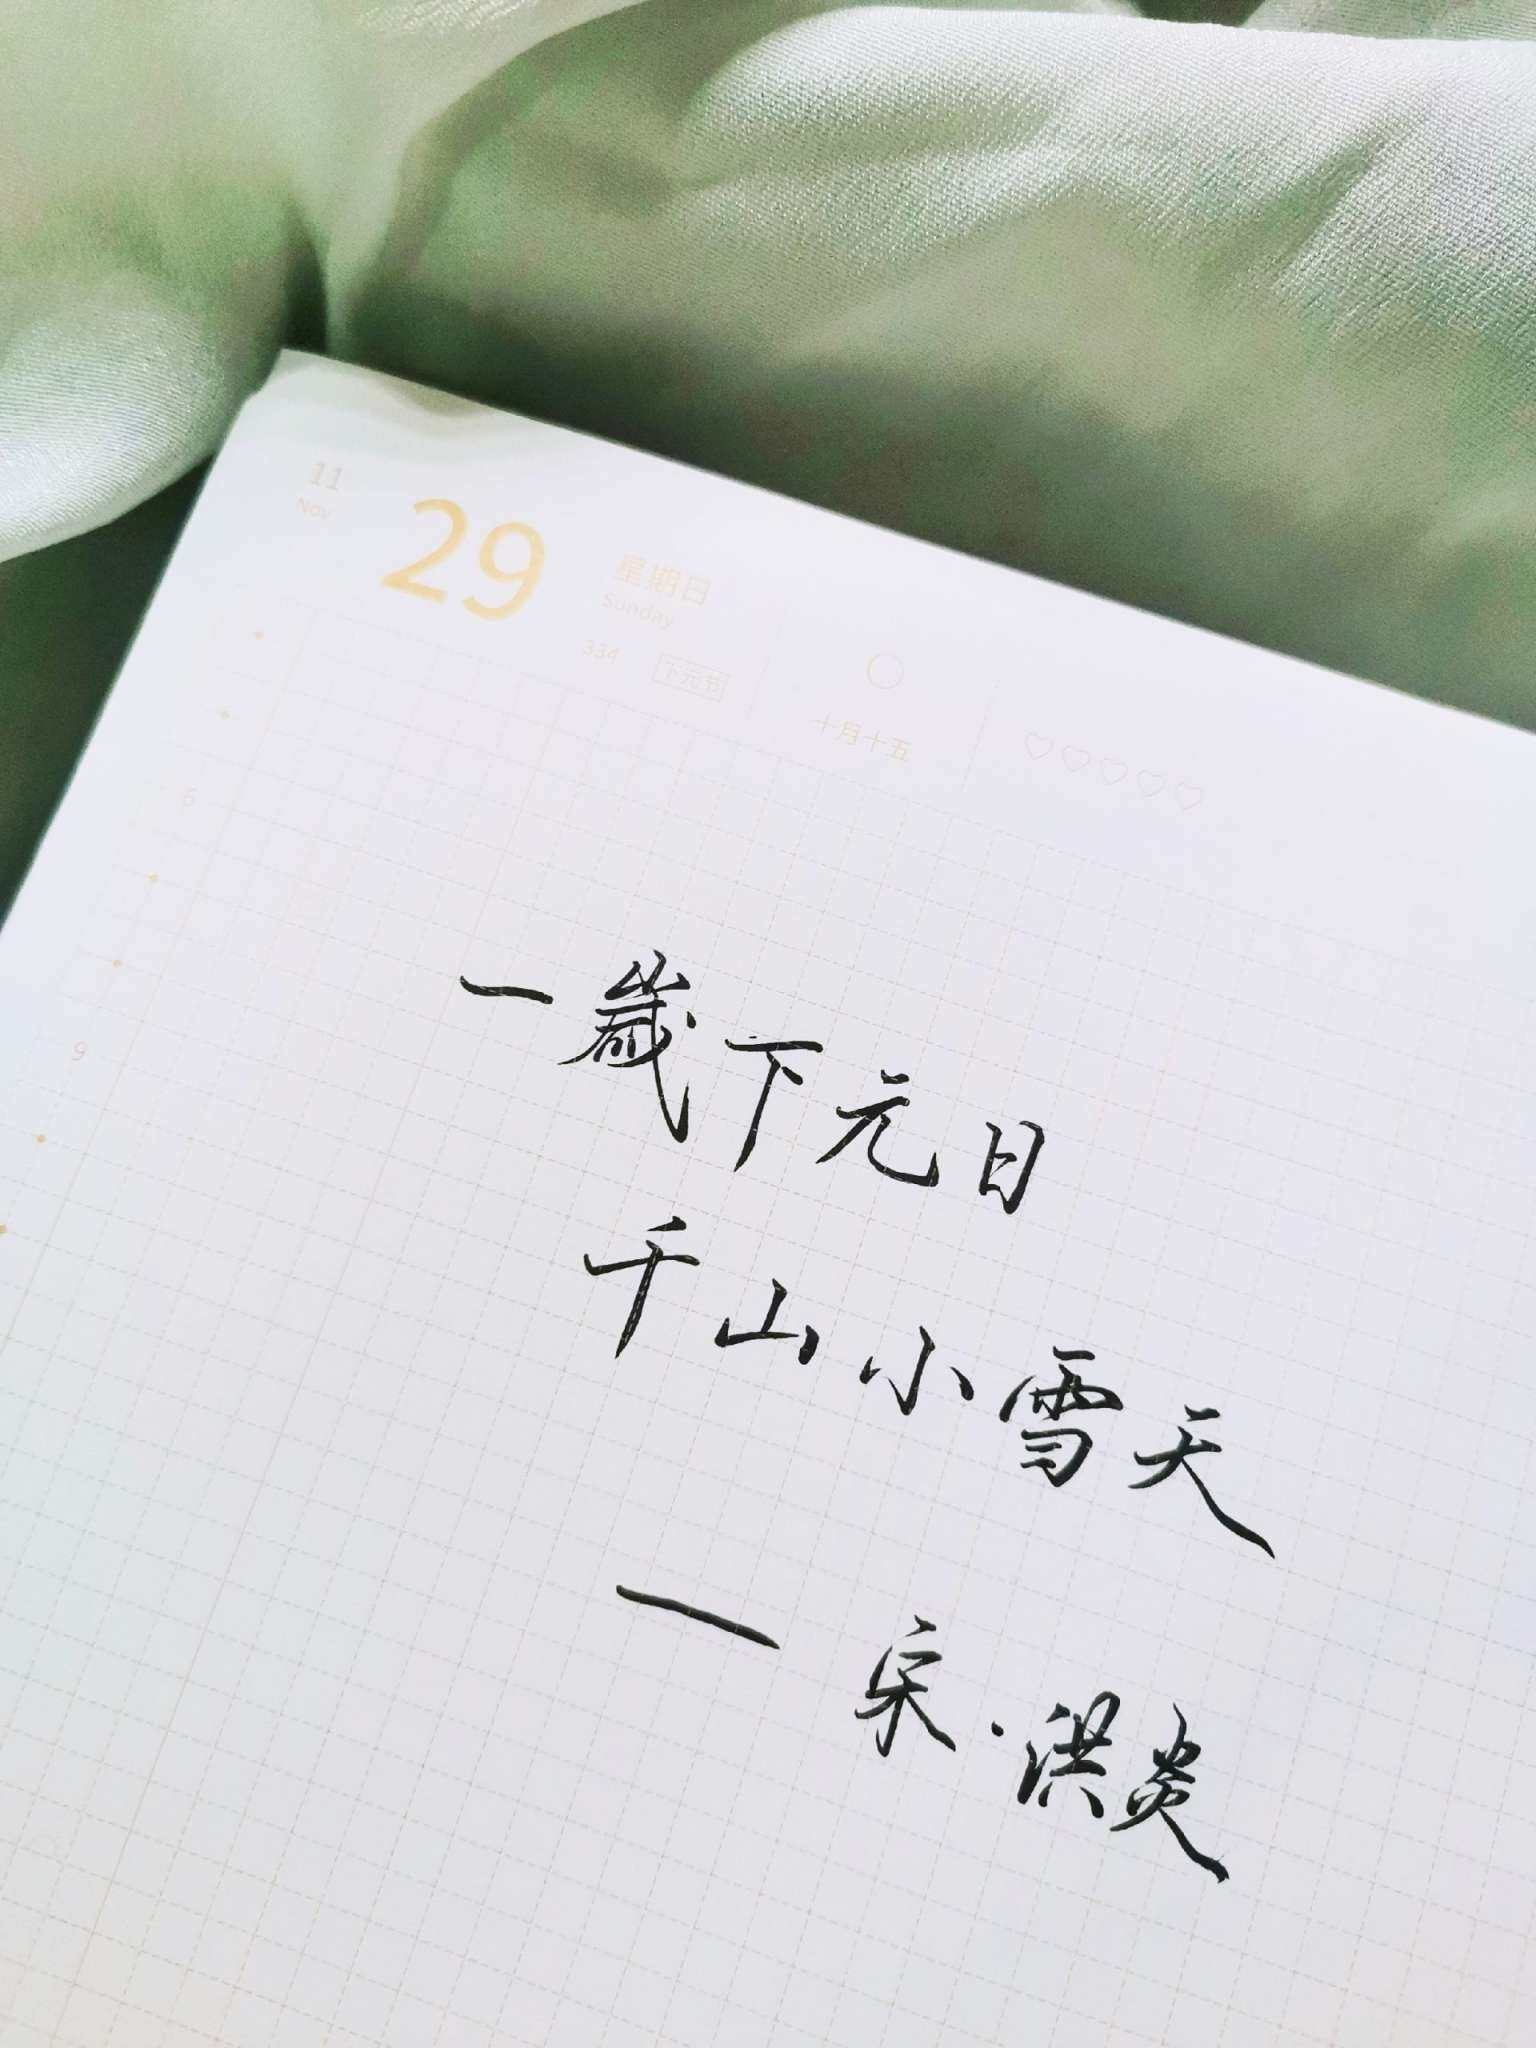 11
Nov
29
星期日
Sunday
334
下元节
十月十五
6
9
一歲下元日
千山小雪天
— 宋·洪炎